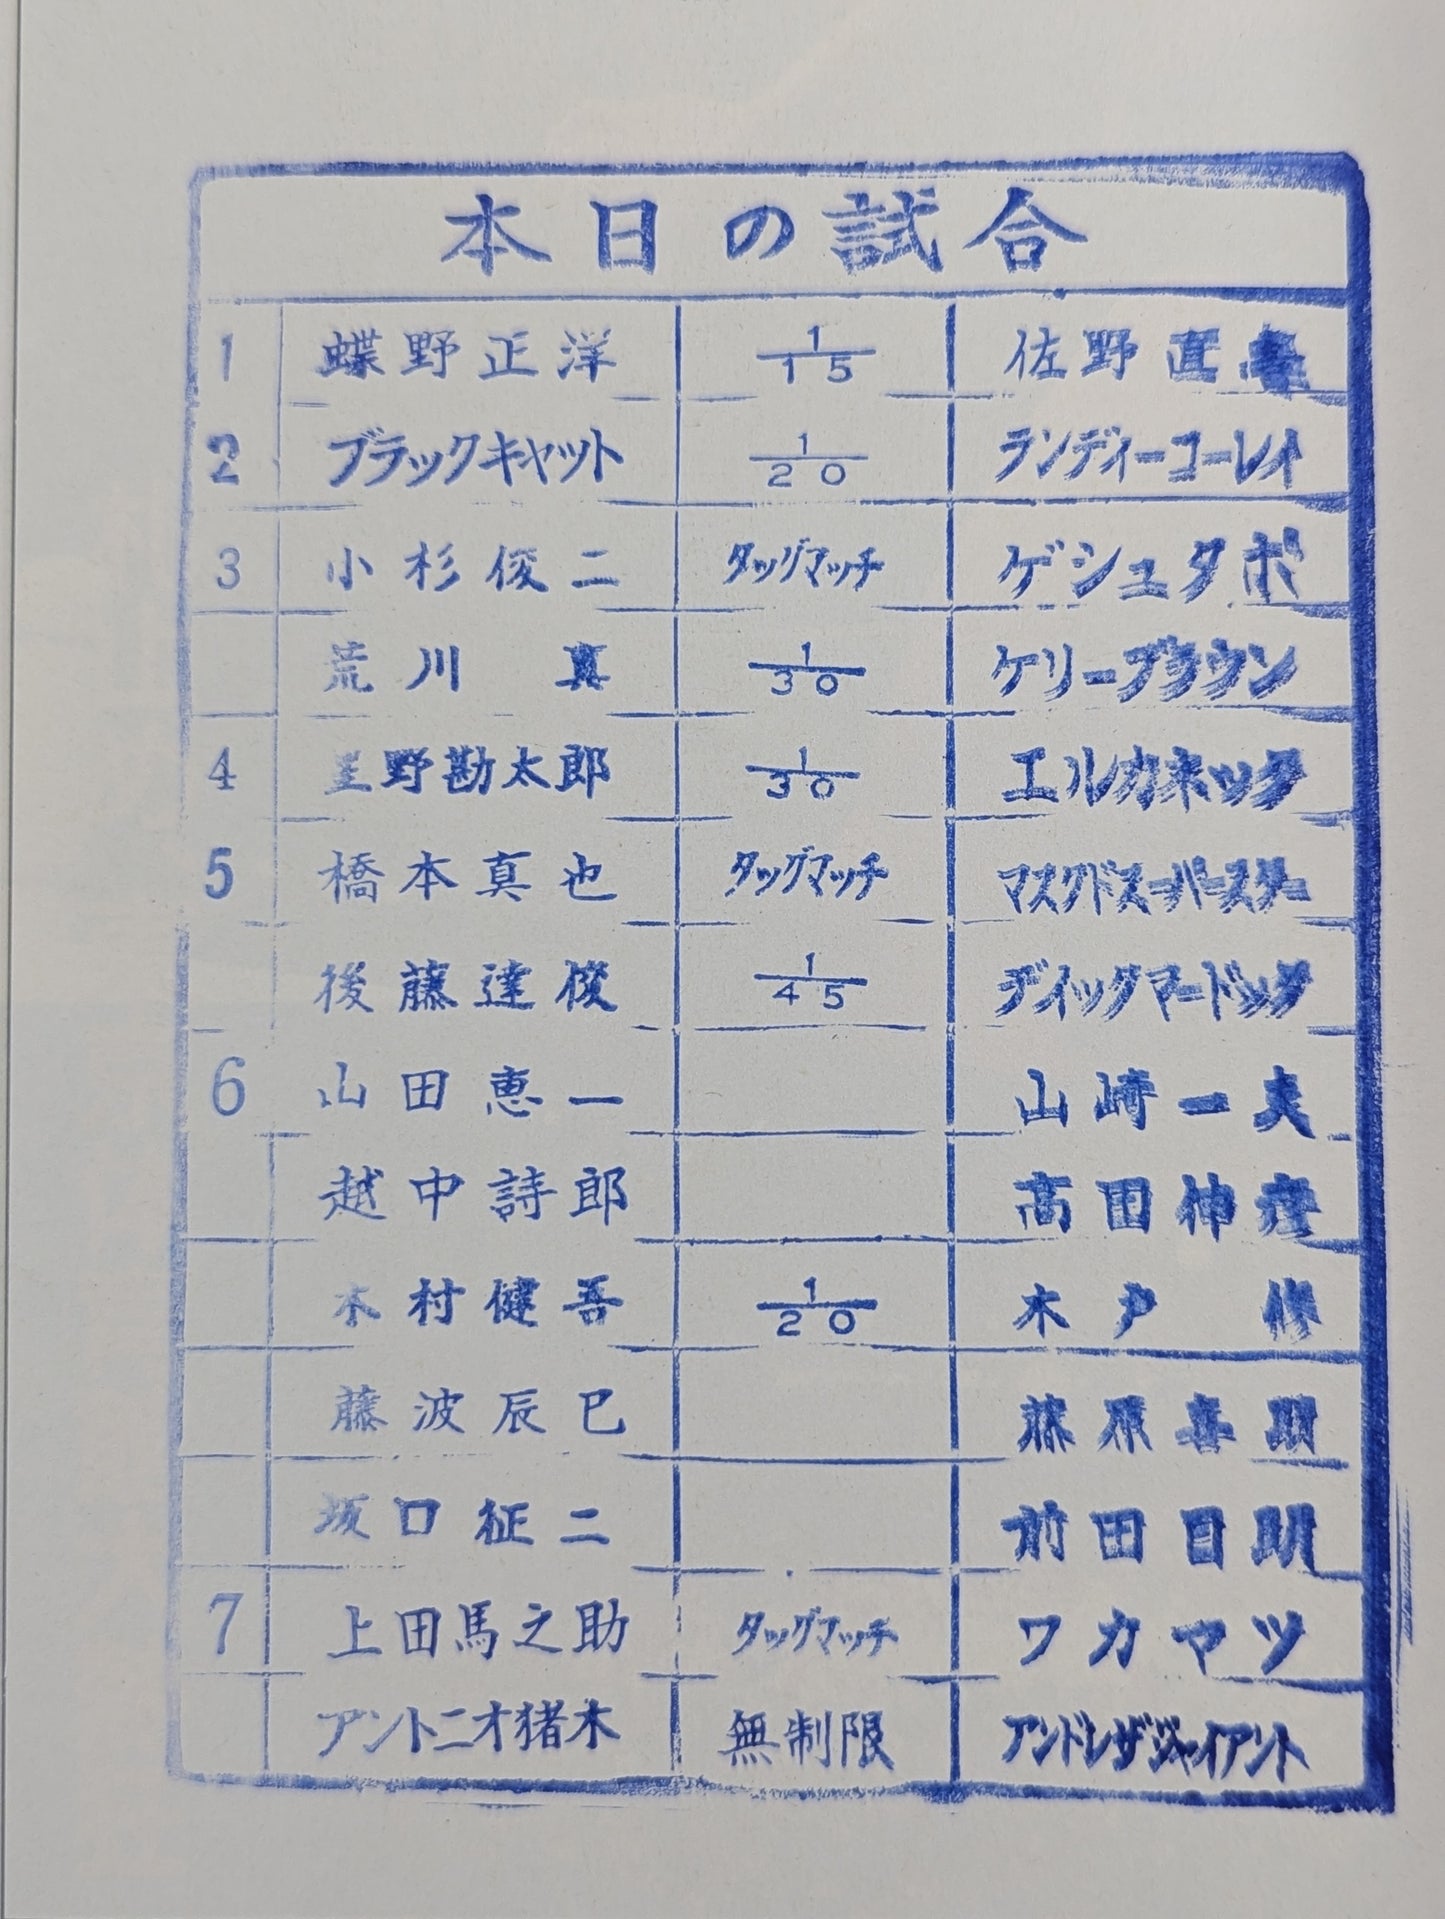 本日の試合
1 蝶野正洋 1/15 佐野直喜
2 ブラックキャット 1/20 ランディーコーレイ
3 小杉俊二 タッグマッチ ゲシュタポ
荒川真 1/30 ケリーブラウン
4 星野勘太郎 1/30 エルカネック
5 橋本真也 タッグマッチ マスクドスーパースター
後藤達俊 1/45 ディックマードック
6 山田恵一 山崎一夫
越中詩郎 高田伸彦
木村健吾 1/20 木戸修
藤波辰巳 藤原喜明
坂口征二 前田日明
7 上田馬之助 タッグマッチ ワカマツ
アントニオ猪木 無制限 アンドレザジャイアント